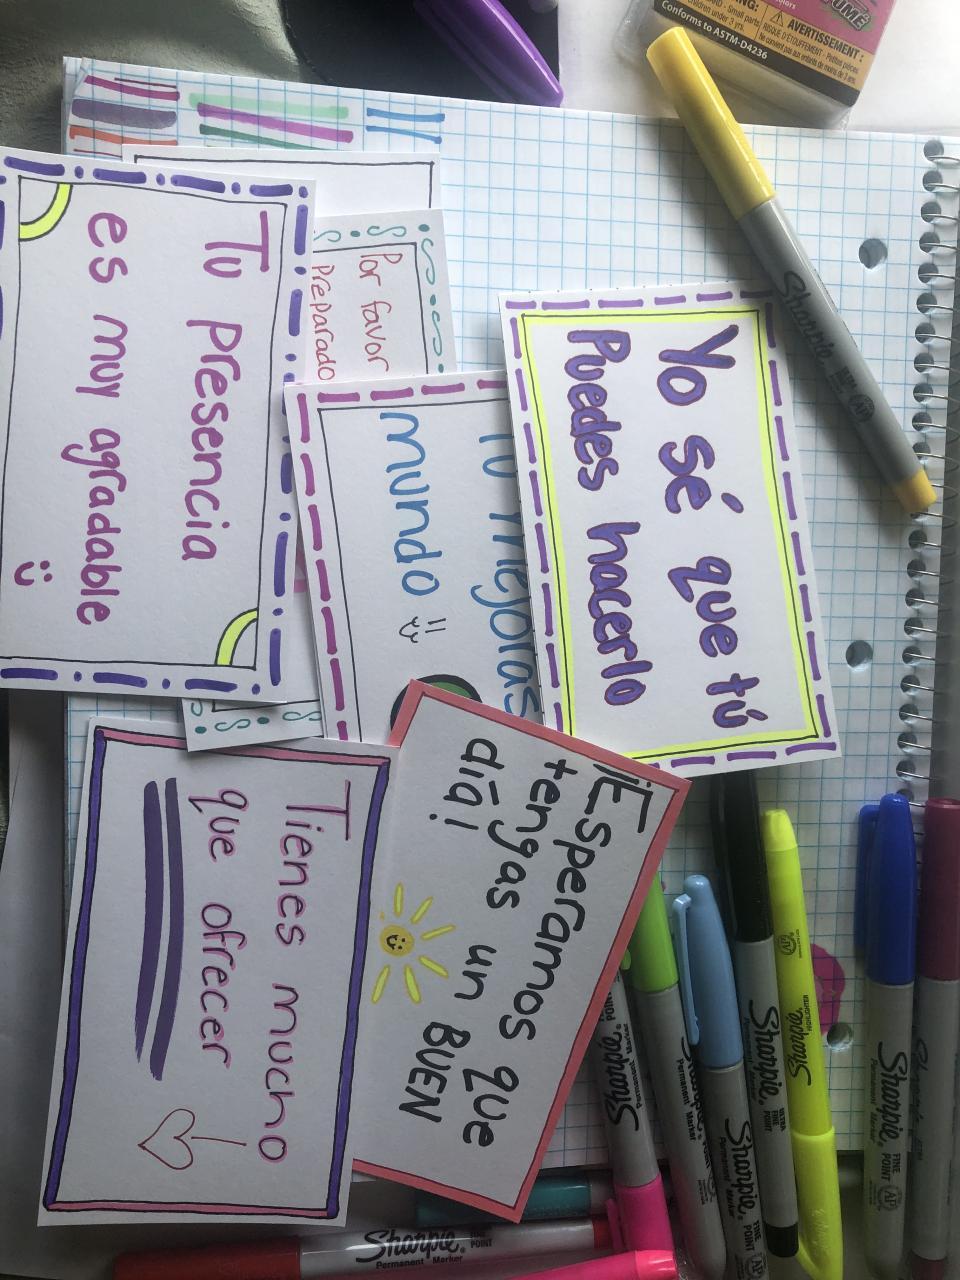 Tu presencia
es muy agradable
Por favor
Preparado
Tu mejoras
mundo
Yo sé que tú
Puedes hacerlo
Tienes mucho
que ofrecer
¡Esperamos que
tengas un BUEN
día!
Sharpie
Sharpie
FINE
POINT
Permanent Marker
Sharpie
Permanent Marker
Sharpie
ULTRA
FINE
POINT
Sharpie
HIGHLIGHTER
Sharpie
FINE
POINT
Sharpie
Permanent Marker
POINT
AVERTISSEMENT :
Conforms to ASTM-D4236